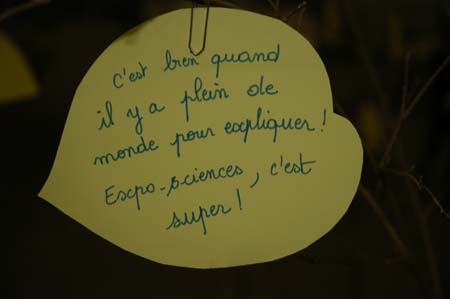 c'est bien quand
il y a plein de
monde pour expliquer !
Expo-sciences, c'est
super !